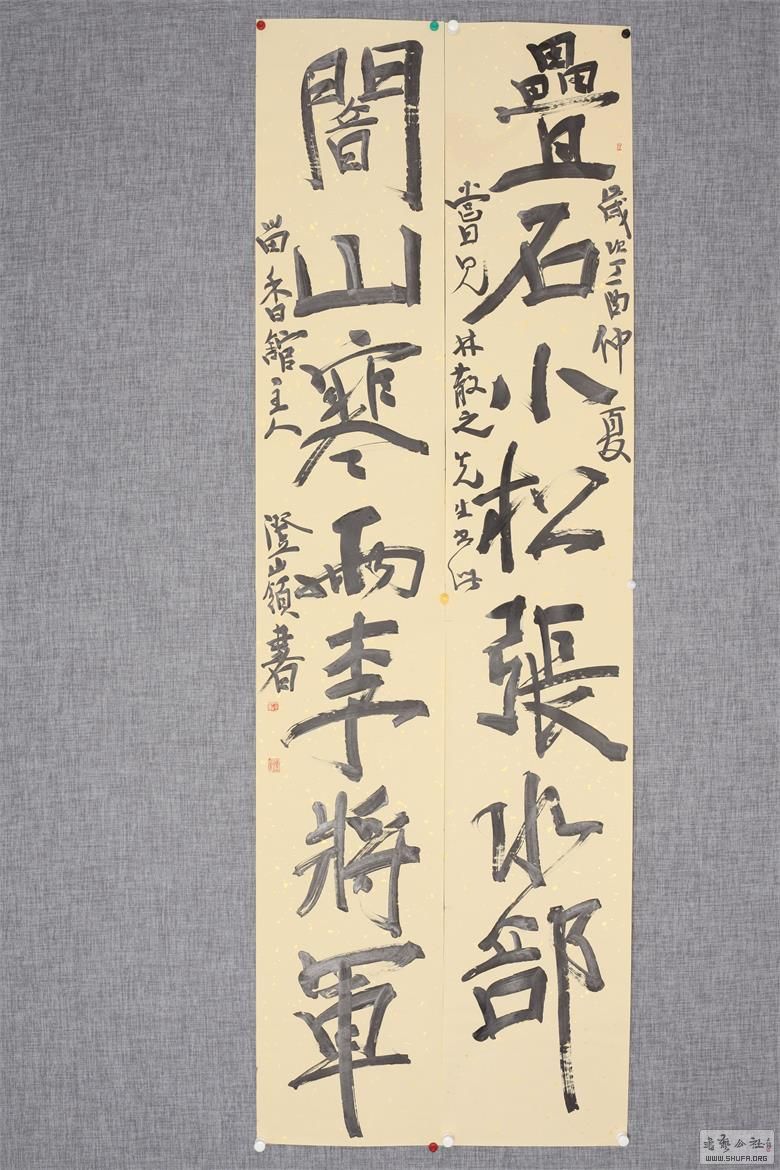 疊石小松張水部
歲次丁酉仲夏
嘗見林散之先生書
闇山寒雨李將軍
留香館主人
澄山領書
書藝公社
WWW.SHUFA.ORG